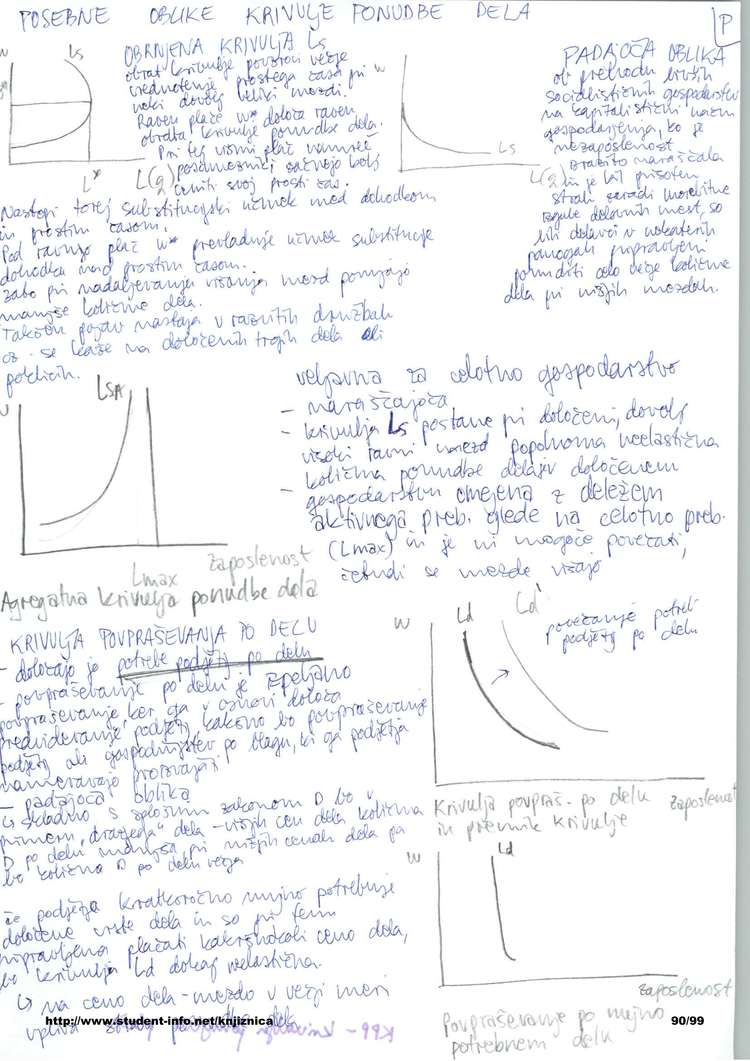 POSEBNE OBLIKE KRIVULJE PONUDBE DELA
P
OBRNJENA KRIVULJA Ls
obrat krivulje povzroči večje
vrednotenje prostega časa pri
neki dovolj veliki mezdi.
Raven plače w* določa raven
obrata krivulje ponudbe dela.
Pri tej višini plač namreč
posamezniki začnejo bolj
ceniti svoj prosti čas.
Nastopi torej substitucijski učinek med dohodkom
in prostim časom.
Pod ravnijo plač w* prevladuje učinek substitucije
dohodka nad prostim časom.
Zato pri nadaljevanju višanja mezd ponujajo
manjše količine dela.
Takšen pojav nastaja v razvitih družbah
oz. se kaže na določenih trgih dela ali
poklicih.
Ls
L*
L(q)
PADAJOČA OBLIKA
ob prehodu bivših
socialističnih gospodarstev
na kapitalistični način
gospodarjenja, ko je
nezaposlenost
izrazito naraščala
in je bil prisoten
strah zaradi morebitne
izgube delovnih mest, so
bili delavci v nekaterih
panogah pripravljeni
ponuditi celo večje količine
dela pri nižjih mezdah.
w
Ls
L(q)
LSA
Lmax
zaposlenost
Agregatna krivulja ponudbe dela
veljavna za celotno gospodarstvo
- naraščajoča
- krivulja Ls postane pri določeni, dovolj
visoki ravni mezd popolnoma neelastična
- količina ponudbe dela je v določenem
gospodarstvu omejena z deležem
aktivnega preb. glede na celotno preb.
(Lmax) in je ni mogoče povečati,
četudi se mezde višajo
KRIVULJA POVPRAŠEVANJA PO DELU
- določajo je potrebe podjetij po delu
- povpraševanje po delu je izpeljano
povpraševanje, ker ga v osnovi določa
predvidevanje podjetij kakšno bo povpraševanje
podjetij ali gospodinjstev po blagu, ki ga podjetja
nameravajo proizvajati
- padajoča oblika
↳ skladno s splošnim zakonom D bo v
primeru "dražjega" dela - višjih cen dela količina
D po delu manjša pri nižjih cenah dela pa
bo količina D po delu večja
w
Ld
Ld'
povečanje potreb
podjetij po delu
Krivulja povpraš. po delu
in premik krivulje
zaposlenost
če podjetja kratkoročno nujno potrebuje
določene vrste dela in so pri tem
pripravljena plačati kakršnokoli ceno dela,
bo krivulja Ld dokaj neelastična.
↳ na ceno dela - mezdo v večji meri
vpliva
w
Ld
zaposlenost
Povpraševanje po nujno
potrebnem delu
http://www.student-info.net/knjiznica
90/99